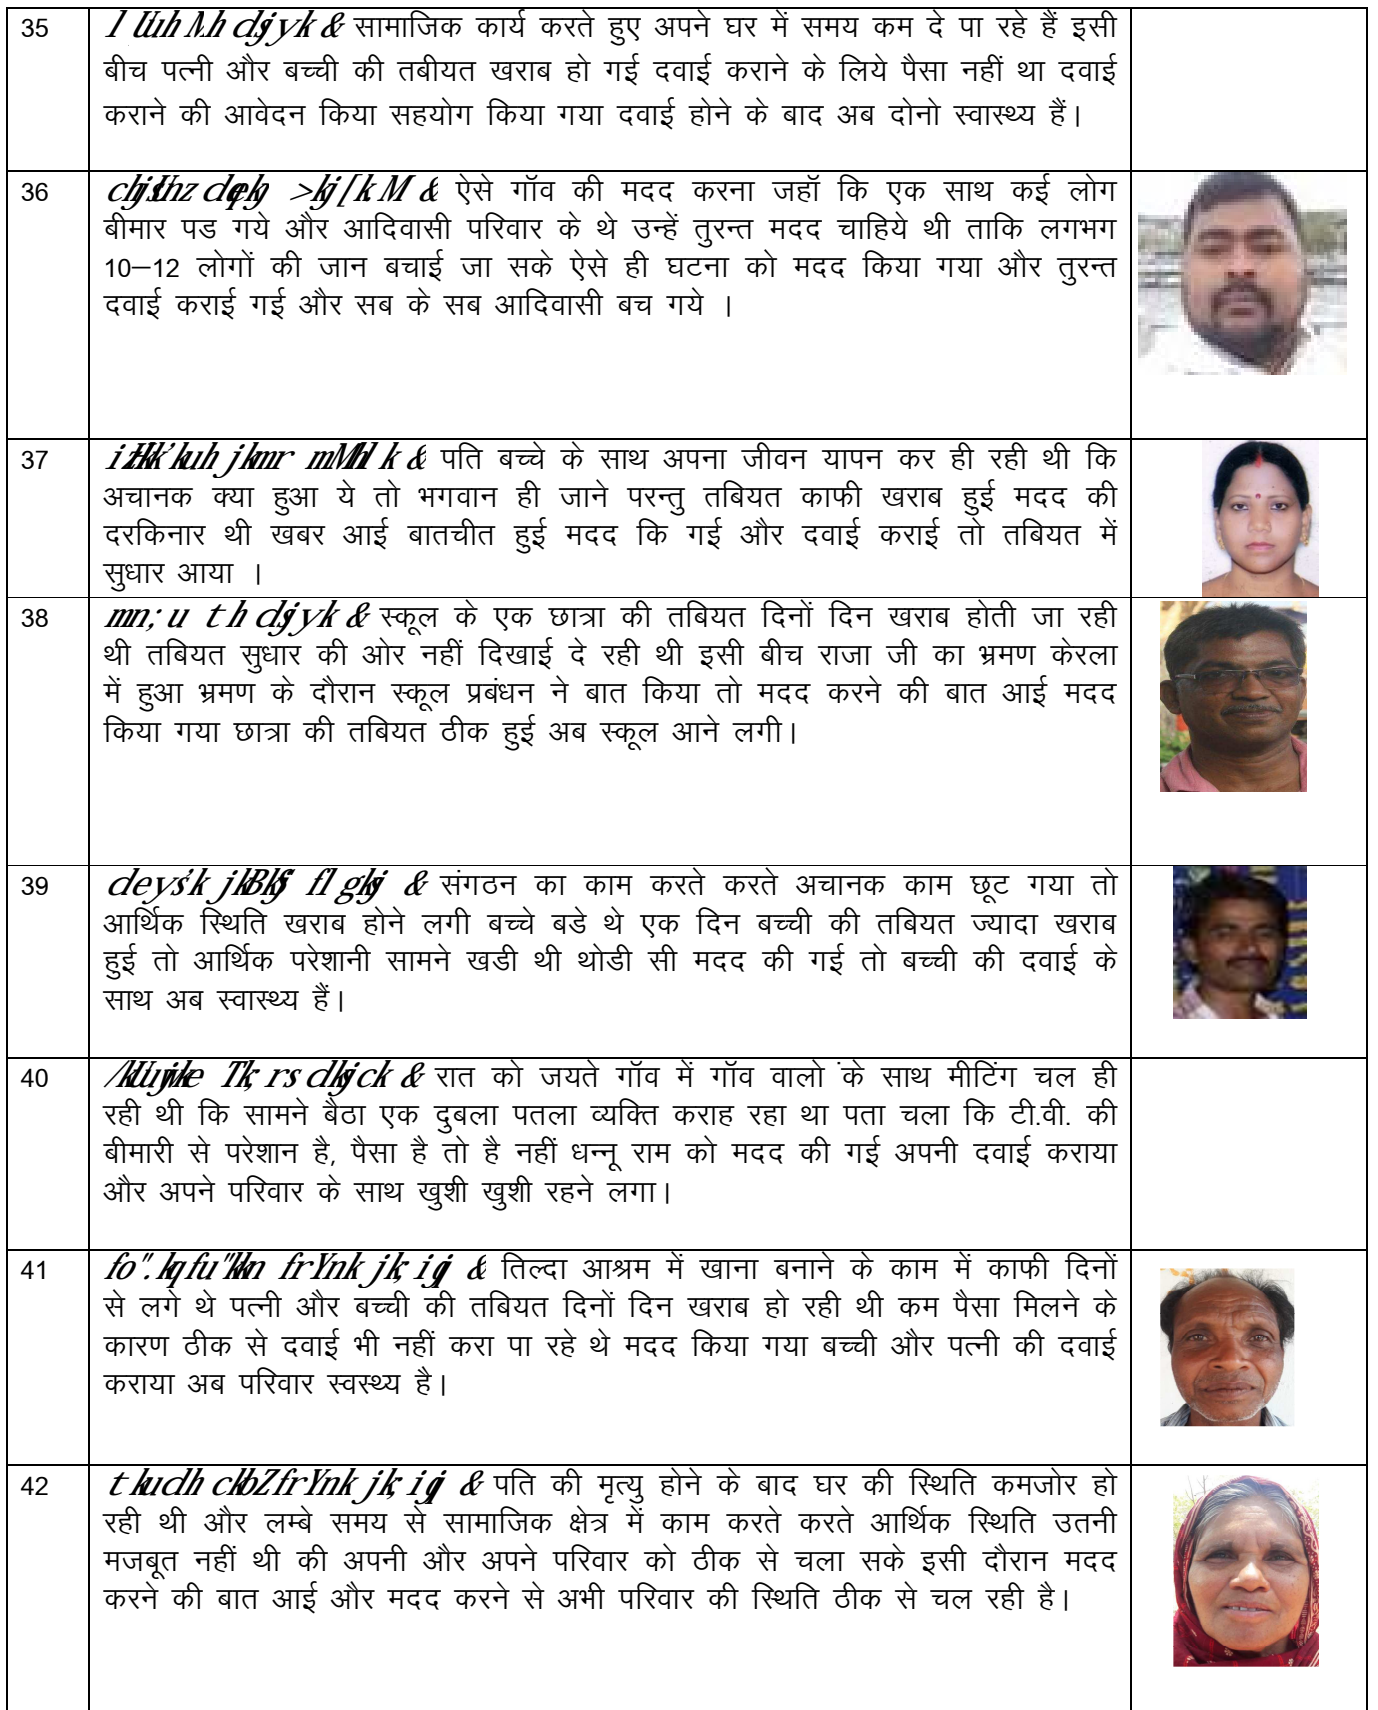 35
& सामाजिक कार्य करते हुए अपने घर में समय कम दे पा रहे हैं इसी
बीच पत्नी और बच्ची की तबीयत खराब हो गई दवाई कराने के लिये पैसा नहीं था दवाई
कराने की आवेदन किया सहयोग किया गया दवाई होने के बाद अब दोनो स्वास्थ्य हैं।
36
& ऐसे गॉव की मदद करना जहॉ कि एक साथ कई लोग
बीमार पड गये और आदिवासी परिवार के थे उन्हें तुरन्त मदद चाहिये थी ताकि लगभग
10–12 लोगों की जान बचाई जा सके ऐसे ही घटना को मदद किया गया और तुरन्त
दवाई कराई गई और सब के सब आदिवासी बच गये ।
37
& पति बच्चे के साथ अपना जीवन यापन कर ही रही थी कि
अचानक क्या हुआ ये तो भगवान ही जाने परन्तु तबियत काफी खराब हुई मदद की
दरकिनार थी खबर आई बातचीत हुई मदद कि गई और दवाई कराई तो तबियत में
सुधार आया ।
38
mn; u t h & स्कूल के एक छात्रा की तबियत दिनों दिन खराब होती जा रही
थी तबियत सुधार की ओर नहीं दिखाई दे रही थी इसी बीच राजा जी का भ्रमण केरला
में हुआ भ्रमण के दौरान स्कूल प्रबंधन ने बात किया तो मदद करने की बात आई मदद
किया गया छात्रा की तबियत ठीक हुई अब स्कूल आने लगी।
39
& संगठन का काम करते करते अचानक काम छूट गया तो
आर्थिक स्थिति खराब होने लगी बच्चे बडे थे एक दिन बच्ची की तबियत ज्यादा खराब
हुई तो आर्थिक परेशानी सामने खडी थी थोडी सी मदद की गई तो बच्ची की दवाई के
साथ अब स्वास्थ्य हैं।
40
& रात को जयते गॉव में गॉव वालो के साथ मीटिंग चल ही
रही थी कि सामने बैठा एक दुबला पतला व्यक्ति कराह रहा था पता चला कि टी.वी. की
बीमारी से परेशान है, पैसा है तो है नहीं धन्नू राम को मदद की गई अपनी दवाई कराया
और अपने परिवार के साथ खुशी खुशी रहने लगा।
41
& तिल्दा आश्रम में खाना बनाने के काम में काफी दिनों
से लगे थे पत्नी और बच्ची की तबियत दिनों दिन खराब हो रही थी कम पैसा मिलने के
कारण ठीक से दवाई भी नहीं करा पा रहे थे मदद किया गया बच्ची और पत्नी की दवाई
कराया अब परिवार स्वस्थ्य है।
42
& पति की मृत्यु होने के बाद घर की स्थिति कमजोर हो
रही थी और लम्बे समय से सामाजिक क्षेत्र में काम करते करते आर्थिक स्थिति उतनी
मजबूत नहीं थी की अपनी और अपने परिवार को ठीक से चला सके इसी दौरान मदद
करने की बात आई और मदद करने से अभी परिवार की स्थिति ठीक से चल रही है।